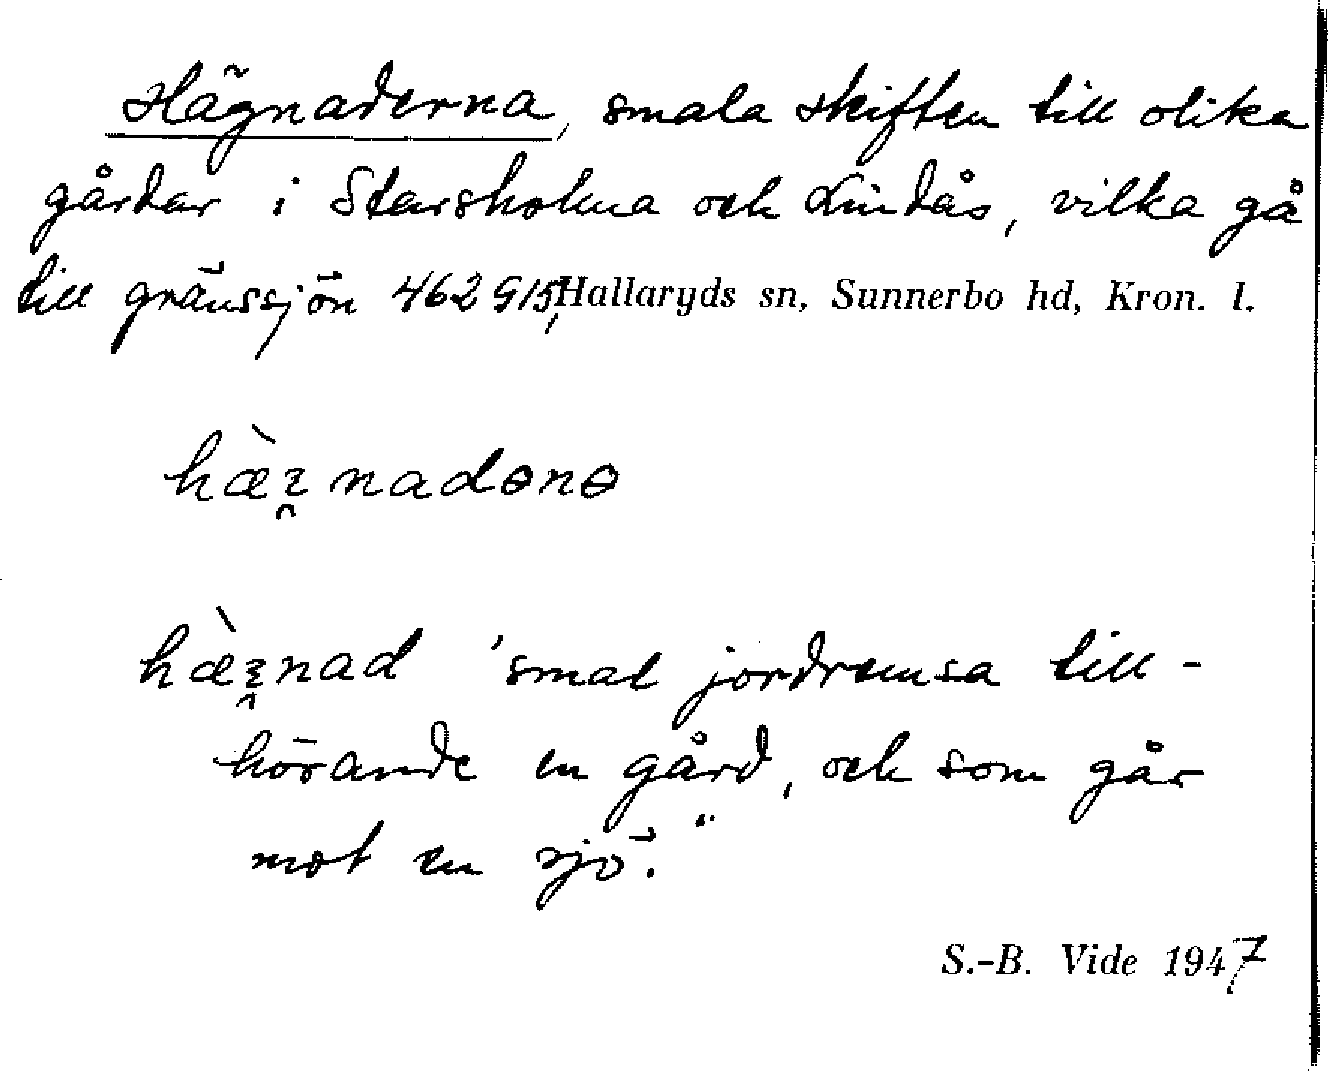 Hägnaderna, smala skiften till olika
gårdar i Starsholma och Lindås, vilka gå
till gränssjön 462 915, Hallaryds sn, Sunnerbo hd, Kron. l.
nadɵnɵ
nad 'smal jordremsa till-
hörande en gård, och som går
mot en sjö."
S.-B. Vide 1947